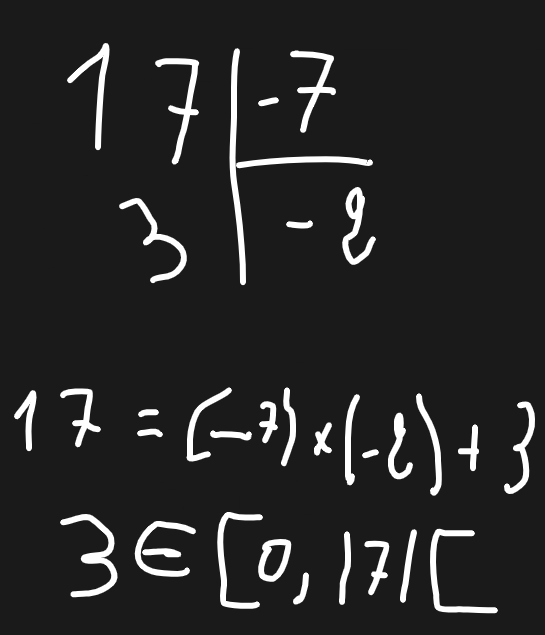 17 | -7
3 | -2
17 = (-7) × (-2) + 3
3 ∈ [0, |7|[